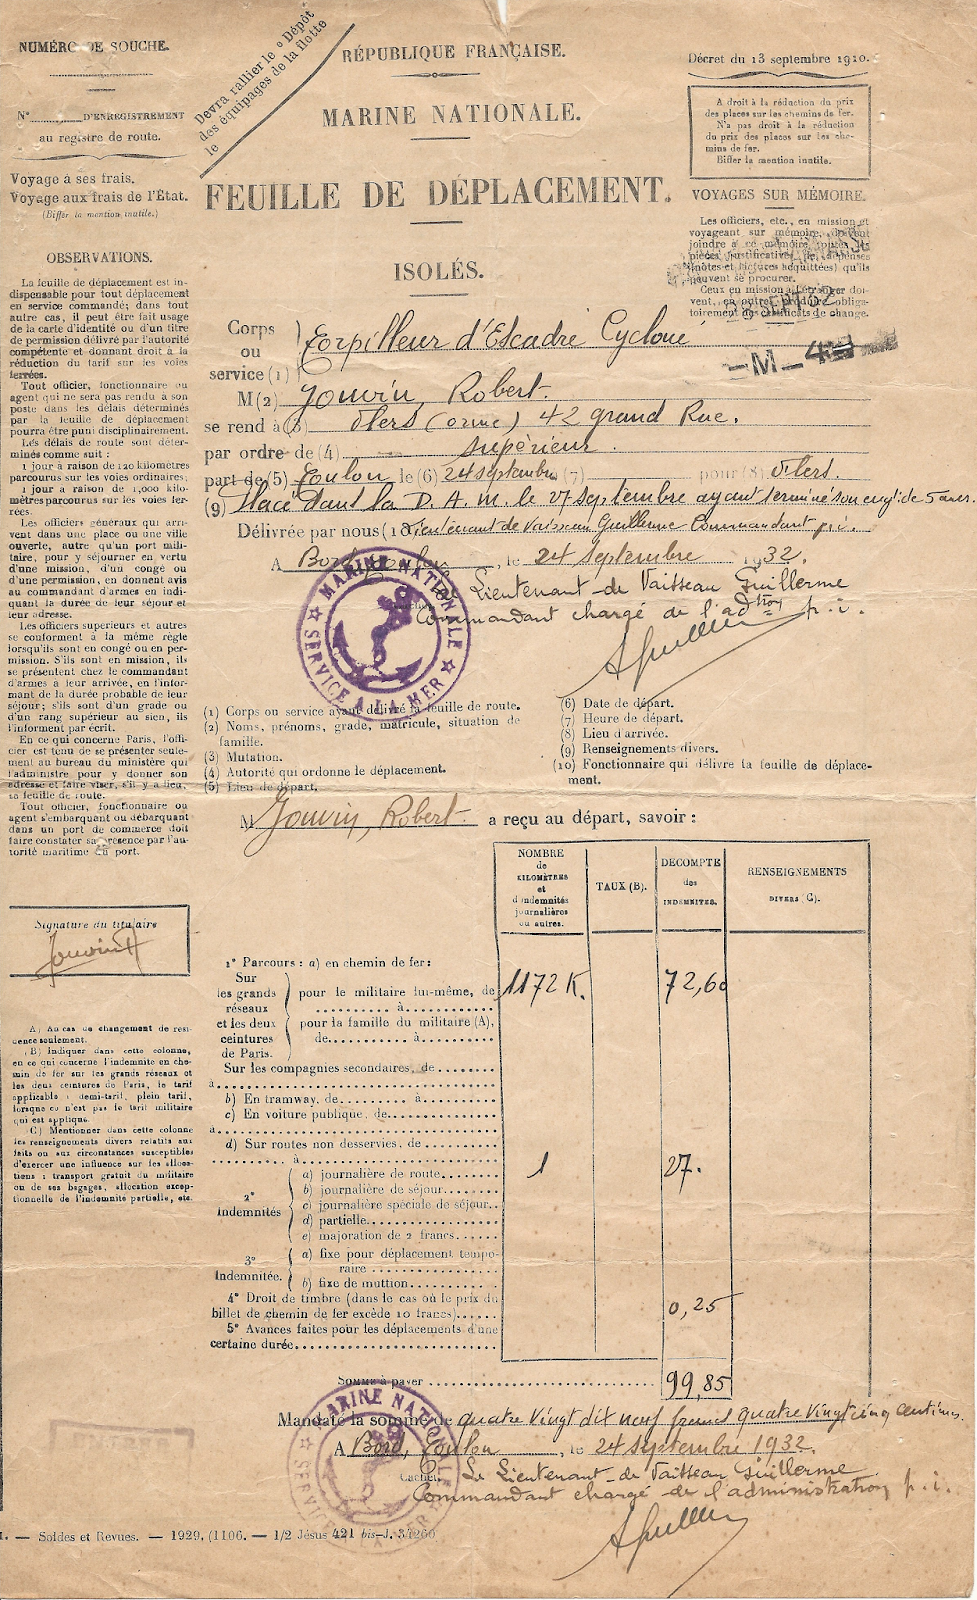 NUMÉRO DE SOUCHE.
N° D'ENREGISTREMENT
au registre de route.
Voyage à ses frais.
Voyage aux frais de l'État.
(Biffer la mention inutile.)
OBSERVATIONS.
La feuille de déplacement est in-
dispensable pour tout déplacement
en service commandé; dans tout
autre cas, il peut être fait usage
de la carte d'identité ou d'un titre
de permission délivré par l'autorité
compétente et donnant droit à la
réduction du tarif sur les voies
ferrées.
Tout officier, fonctionnaire ou
agent qui ne sera pas rendu à son
poste dans les délais déterminés
par la feuille de déplacement
pourra être puni disciplinairement.
Les délais de route sont déter-
minés comme suit :
1 jour à raison de 120 kilomètres
parcourus sur les voies ordinaires;
1 jour à raison de 1,000 kilo-
mètres parcourus sur les voies fer-
rées.
Les officiers généraux qui arri-
vent dans une place ou une ville
ouverte, autre qu'un port mili-
taire, pour y séjourner en vertu
d'une mission, d'un congé ou
d'une permission, en donnent avis
au commandant d'armes en indi-
quant la durée de leur séjour et
leur adresse.
Les officiers supérieurs et autres
se conforment à la même règle
lorsqu'ils sont en congé ou en per-
mission. S'ils sont en mission, ils
se présentent chez le commandant
d'armes à leur arrivée, en l'infor-
mant de la durée probable de leur
séjour; s'ils sont d'un grade ou
d'un rang supérieur au sien, ils
l'informent par écrit.
En ce qui concerne Paris, l'offi-
cier est tenu de se présenter seule-
ment au bureau du ministère qui
l'administre pour y donner son
adresse et faire viser, s'il y a lieu,
sa feuille de route.
Tout officier, fonctionnaire ou
agent s'embarquant ou débarquant
dans un port de commerce doit
faire constater sa présence par l'au-
torité maritime du port.
Signature du titulaire
Jouvin R
A) Au cas de changement de rési-
dence seulement.
(B) Indiquer dans cette colonne,
en ce qui concerne l'indemnité en che-
min de fer sur les grands réseaux et
les deux ceintures de Paris, le tarif
applicable : demi-tarif, plein tarif,
lorsque ce n'est pas le tarif militaire
qui est appliqué.
C) Mentionner dans cette colonne
les renseignements divers relatifs aux
faits ou aux circonstances susceptibles
d'exercer une influence sur les alloca-
tions : transport gratuit du militaire
ou de ses bagages, allocation excep-
tionnelle de l'indemnité partielle, etc.
Devra rallier le Dépôt
des équipages de la flotte
le
RÉPUBLIQUE FRANÇAISE.
MARINE NATIONALE.
FEUILLE DE DÉPLACEMENT.
ISOLÉS.
Décret du 13 septembre 1910.
A droit à la réduction du prix
des places sur les chemins de fer.
N'a pas droit à la réduction
du prix des places sur les che-
mins de fer.
Biffer la mention inutile.
VOYAGES SUR MÉMOIRE.
Les officiers, etc., en mission et
voyageant sur mémoire, doivent
joindre à ce mémoire toutes les
pièces justificatives de dépenses
(notes et factures acquittées) qu'ils
peuvent se procurer.
Ceux en mission à l'étranger doi-
vent, en outre, produire obliga-
toirement des certificats de change.
SEPT 32
M 4
Corps ou service (1) Torpilleur d'Escadre Cyclone
M (2) Jouvin, Robert.
se rend à (3) Flers (orne) 42 grand Rue.
par ordre de (4) supérieur.
part de (5) Toulon le (6) 24 septembre (7) pour (8) Flers.
(9) Placé dans la D. A. M. le 27 septembre ayant terminé son engt de 5 ans.
Délivrée par nous (10) Lieutenant de Vaisseau Guillerme Commandant p.i.
A Bord, Toulon, le 24 septembre 1932.
Le Lieutenant de Vaisseau Guillerme
Commandant chargé de l'adtion p. i.
MARINE NATIONALE
SERVICE A LA MER
(1) Corps ou service ayant délivré la feuille de route.
(2) Noms, prénoms, grade, matricule, situation de
famille.
(3) Mutation.
(4) Autorité qui ordonne le déplacement.
(5) Lieu de départ.
(6) Date de départ.
(7) Heure de départ.
(8) Lieu d'arrivée.
(9) Renseignements divers.
(10) Fonctionnaire qui délivre la feuille de déplace-
ment.
M Jouvin, Robert. a reçu au départ, savoir :
NOMBRE de KILOMÈTRES et d'indemnités journalières ou autres.
TAUX (B).
DÉCOMPTE des INDEMNITÉS.
RENSEIGNEMENTS DIVERS (C).
1° Parcours : a) en chemin de fer :
Sur les grands réseaux et les deux ceintures de Paris.
pour le militaire lui-même, de 1172 K. 72,60
à
pour la famille du militaire (A),
de à
Sur les compagnies secondaires, de
à
b) En tramway, de à
c) En voiture publique, de
à
d) Sur routes non desservies, de
à
2° Indemnités
a) journalière de route 1 27.
b) journalière de séjour
c) journalière spéciale de séjour
d) partielle
e) majoration de 2 francs
3° Indemnitée.
a) fixe pour déplacement tempo-
raire
b) fixe de muttion
4° Droit de timbre (dans le cas où le prix du
billet de chemin de fer excède 10 francs) 0,25
5° Avances faites pour les déplacements d'une
certaine durée
Somme à payer 99,85
Mandaté la somme de quatre vingt dix neuf francs quatre vingt cinq centimes.
A Bord, Toulon, le 24 septembre 1932.
Cachet.
Le Lieutenant de Vaisseau Guillerme
Commandant chargé de l'administration p. i.
MARINE NATIONALE
SERVICE A LA MER
— Soldes et Revues. — 1929, (1106. — 1/2 Jésus 421 bis-J. 34260